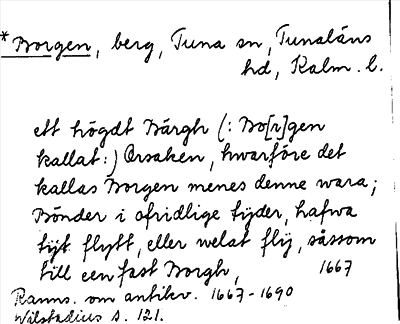 *Borgen, berg, Tuna sn, Tunaläns
hd, Kalm. l.
ett högdt Bärgh (: Bo[r]gen
kallat :) Orsaken, hwarföre det
kallas Borgen menes denne wara;
Bönder i ofridlige tijder, hafwa
tijt flytt, eller welat flij, såssom
till een fast Borgh, 1667
Ranns. om antikv. 1667-1690
Wilstadius s. 121.